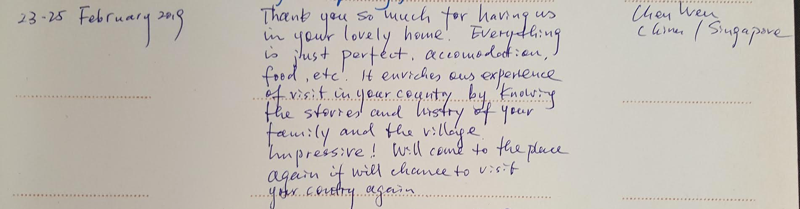 23-25 February 2019
Thank you so much for having us
in your lovely home. Everything
is just perfect, accomodation,
food, etc. It enriches ous experience
of visit in your country by knowing
the stories and histry of your
family and the village.
Impressive! Will come to the place
again if will chance to visit
your coutry again
Chen Wen
China / Singapore